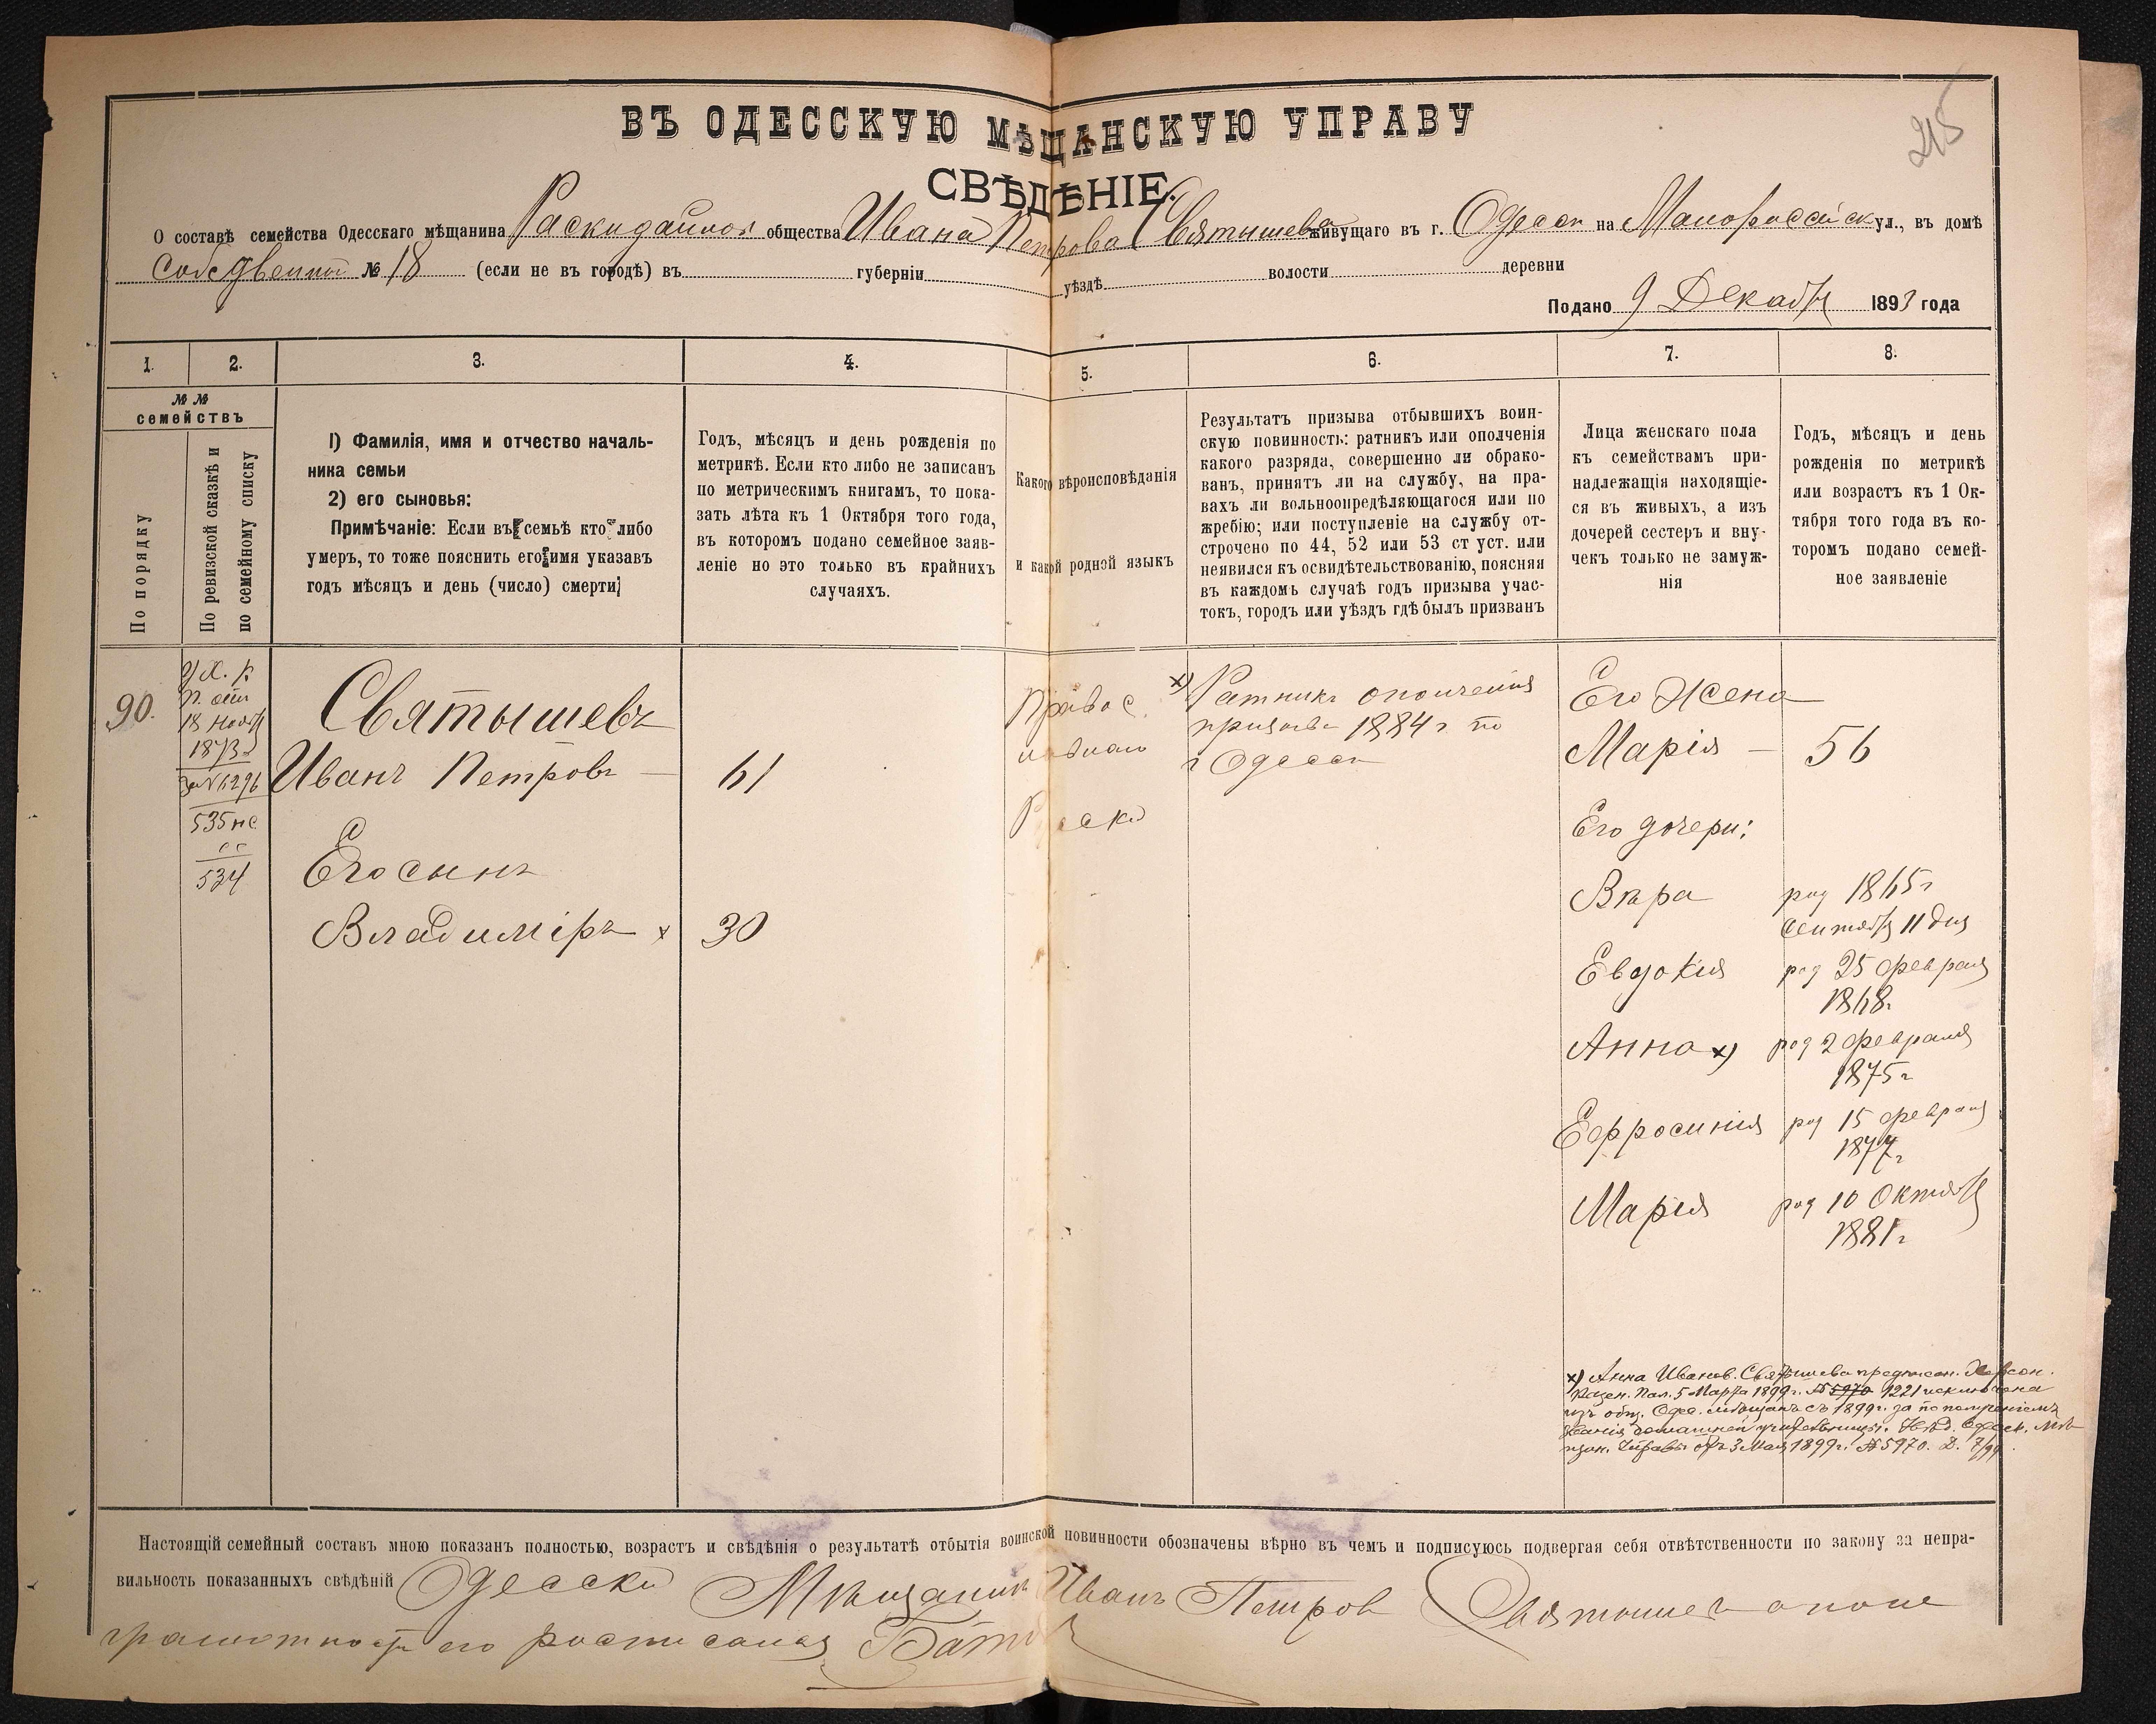 215
ВЪ ОДЕССКУЮ МѢЩАНСКУЮ УПРАВУ
СВѢДѢНІЕ.
О составѣ семейства Одесскаго мѣщанина Раскидайлов общества Ивана Петрова Святышева живущаго въ г. Одессѣ на Малороссійск ул., въ домѣ
№ 18 (если не въ городѣ) въ губерніи уѣздѣ волости деревни
Подано 9 Декабря 1893 года
1. 2. 3. 4. 5. 6. 7. 8.
№ №
семействъ
По порядку
По ревизской сказкѣ и
по семейному списку
1) Фамилія, имя и отчество началь-
ника семьи
2) его сыновья:
Примѣчаніе: Если въ семьѣ кто либо
умеръ, то тоже пояснить его имя указавъ
годъ мѣсяцъ и день (число) смерти;
Годъ, мѣсяцъ и день рожденія по
метрикѣ. Если кто либо не записанъ
по метрическимъ книгамъ, то пока-
зать лѣта къ 1 Октября того года,
въ которомъ подано семейное заяв-
леніе но это только въ крайнихъ
случаяхъ.
Какого вѣроисповѣданія
и какой родной языкъ
Результатъ призыва отбывшихъ воин-
скую повинность: ратникъ или ополченія
какого разряда, совершенно ли обрако-
ванъ, принятъ ли на службу, на пра-
вахъ ли вольноопредѣляющагося или по
жребію; или поступленіе на службу от-
строчено по 44, 52 или 53 ст уст. или
неявился къ освидѣтельствованію, поясняя
въ каждомъ случаѣ годъ призыва учас-
токъ, городъ или уѣздъ гдѣ былъ призванъ
Лица женскаго пола
къ семействамъ при-
надлежащія находящіе-
ся въ живыхъ, а изъ
дочерей сестеръ и вну-
чекъ только не замуж-
нія
Годъ, мѣсяцъ и день
рожденія по метрикѣ
или возрастъ къ 1 Ок-
тября того года въ ко-
торомъ подано семей-
ное заявленіе
90.
18 Нояб
1873
за № 6296
535
534
Святышевъ
Иванъ Петровъ — 61
Его сынъ
Владиміръ x 30
Правос
Русскій
x) Ратникъ ополченія
призыва 1884 г. по
г Одессѣ
Его Жена
Марія — 56
Его дочери:
Вѣра род 1865 г
Сентября 11 дня
Евдокія род 25 февраля
1868.
Анна x) род 2 февраля
1875 г
Ефросинія род 15 февраля
1877 г
Марія род 10 Октября
1881 г
x) Анна Иванов. Святышева предписан. Херсон.
Казен. Пал. 5 Марта 1899 г. № 5970 1221 исключена
изъ общ. Одес. мѣщанъ съ 1899 г. за
званія домашней учительницы. Одесск. Мѣ-
щан. Управы отъ 3 Мая 1899 г. № 5970. Д. 7/99.
Настоящій семейный составъ мною показанъ полностью, возрастъ и свѣдѣнія о результатѣ отбытія воинской повинности обозначены вѣрно въ чемъ и подписуюсь подвергая себя отвѣтственности по закону за непра-
вильность показанныхъ свѣдѣній Одесскій Мѣщанинъ Иванъ Петров Святышев а по не
грамотности его росписался